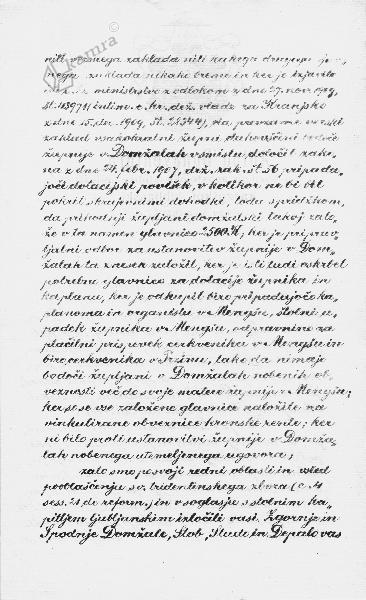 niti verskega zaklada niti kakega drugega jav-
nega zaklada nikako breme in ker je izjavilo
ministrstvo z odlokom z dne 27. nov. 1909,
št. 11397 (intim. c. kr. dež. vlade za Kranjsko
z dne 15. dec. 1909, št. 28344), da prevzame verski
zaklad vsakokratni župni duhovščini
župnije v Domžalah v smislu določil zako-
na z dne 24. febr. 1907, drž. zak. št. 56, pripada-
joči dotacijski povišek, v kolikor ne bi bil
pokrit s krajevnimi dohodki, toda s pridržkom,
da prihodnji župljani domžalski takoj zalo-
že v ta namen glavnico 2500 K, ker je priprav-
ljalni odbor za ustanovitev župnije v Dom-
žalah ta znesek založil, ker je isti tudi oskrbel
potrebno glavnico za dotacijo župnika in
kaplana, ker je odkupil biro pripadajočo ka-
planoma in organistu v Mengšu, štolni u-
padek župnika v Mengšu, odpravnino za
plačilni prispevek cerkvenika v Mengšu in
biro cerkvenika v Trzinu, tako da nimajo
bodoči župljani v Domžalah nobenih ob-
veznosti več do svoje matere župnije v Mengšu;
ker so se vse založene glavnice naložile na
vinkulirane obveznice kronske rente; ker
ni bilo proti ustanovitvi župnije v Domža-
lah nobenega utemeljenega ugovora;
zato smo po svoji redni oblasti in vsled
pooblaščenja sv. tridentinskega zbora (c. 4
sess. 21. de reform.) in v soglasju s stolnim ka-
pitljem ljubljanskim izločili vasi: Zgornje in
Spodnje Domžale, Stob, Studa in Depala vas